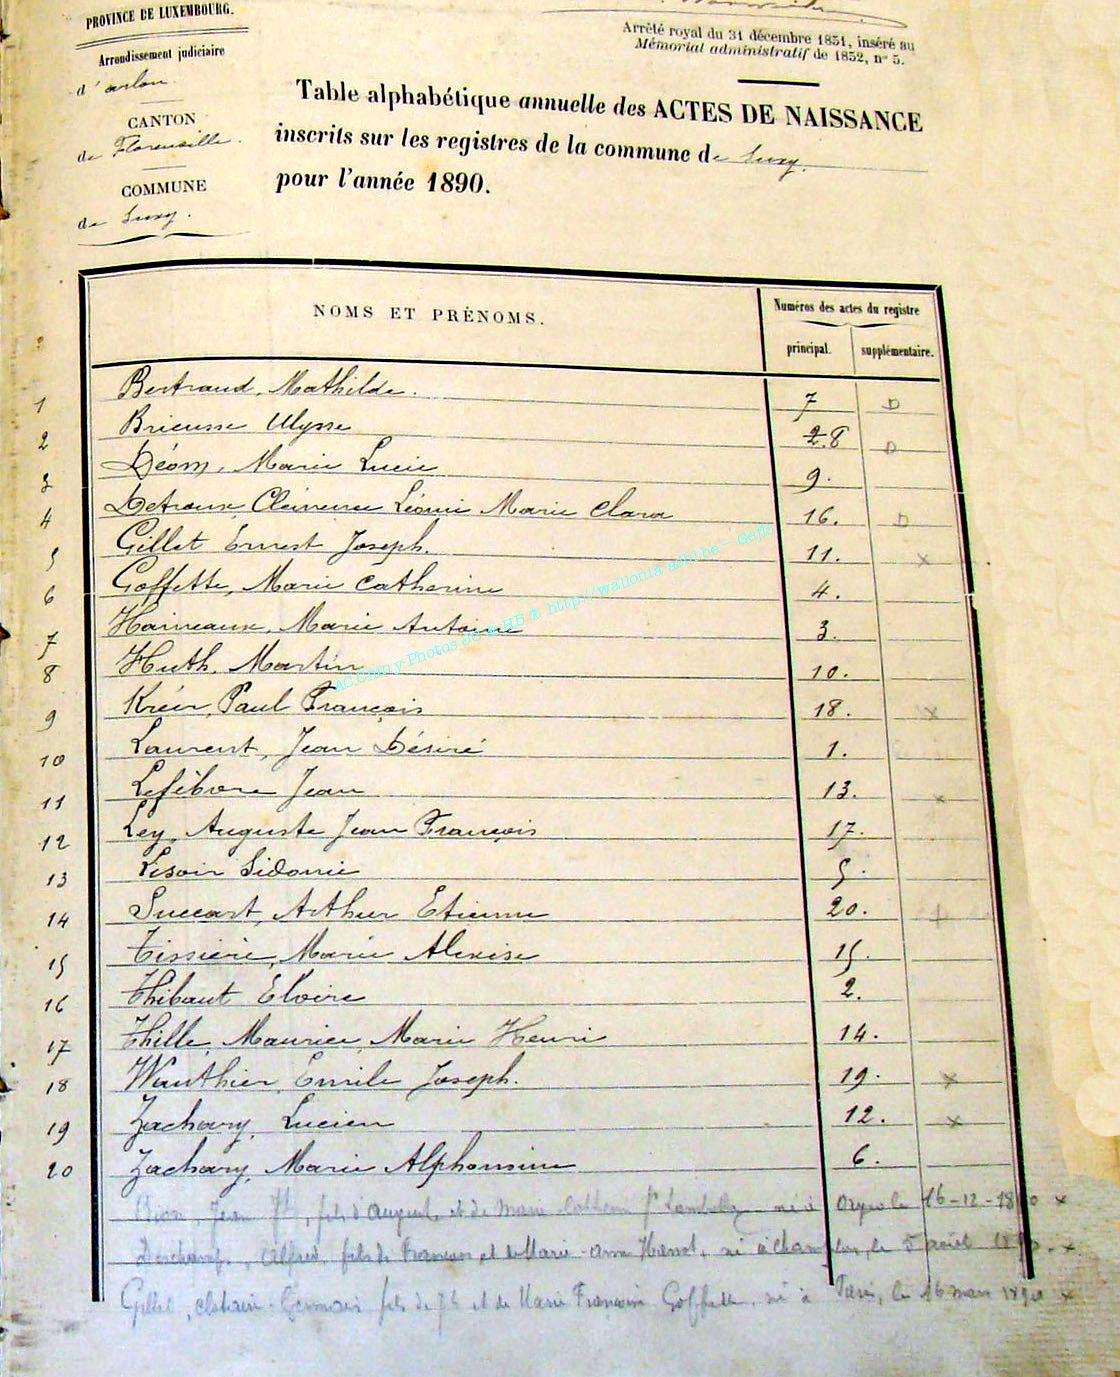 PROVINCE DE LUXEMBOURG.
Arrondissement judiciaire
d'arlon
CANTON
de Florenville.
COMMUNE
de Suxy.
Arrêté royal du 31 décembre 1851, inséré au
Mémorial administratif de 1852, n° 5.
Table alphabétique annuelle des ACTES DE NAISSANCE
inscrits sur les registres de la commune de Suxy.
pour l'année 1890.
NOMS ET PRÉNOMS.
Numéros des actes du registre
principal. supplémentaire.
1 Bertrand, Mathilde. 7
2 Brieusse Ulysse 2.8
3 Déom, Marie Lucie 9.
4 Detroux Clémence Léonie Marie Clara 16.
5 Gillet Ernest Joseph. 11. x
6 Goffette, Marie Catherine 4.
7 Haineaux, Marie Antoine 3.
8 Huth, Martin 10.
9 Kréir, Paul François 18. x
10 Laurent, Jean Désiré 1.
11 Lefèbvre Jean 13. x
12 Ley, Auguste Jean François 17.
13 Lisoir Sidonie 5.
14 Succart, Arthur Etienne 20. +
15 Tissière, Marie Alexise 15.
16 Thibaut Elvire 2.
17 Thille, Maurice, Marie Henri 14.
18 Wauthier, Emile Joseph. 19. x
19 Zachary, Lucien 12. x
20 Zachary, Marie Alphonsine 6.
Jean fils d'August. et de Marie né à le 16-12-1890 x
Alfred, fils de François et de Marie-Anne né à le 5 août 1890. x
Gillet, Germain fils de et de Marie Françoise Goffette, né à Paris, le 16 mars 1890 x
Photos http://wallonia.asbl.be